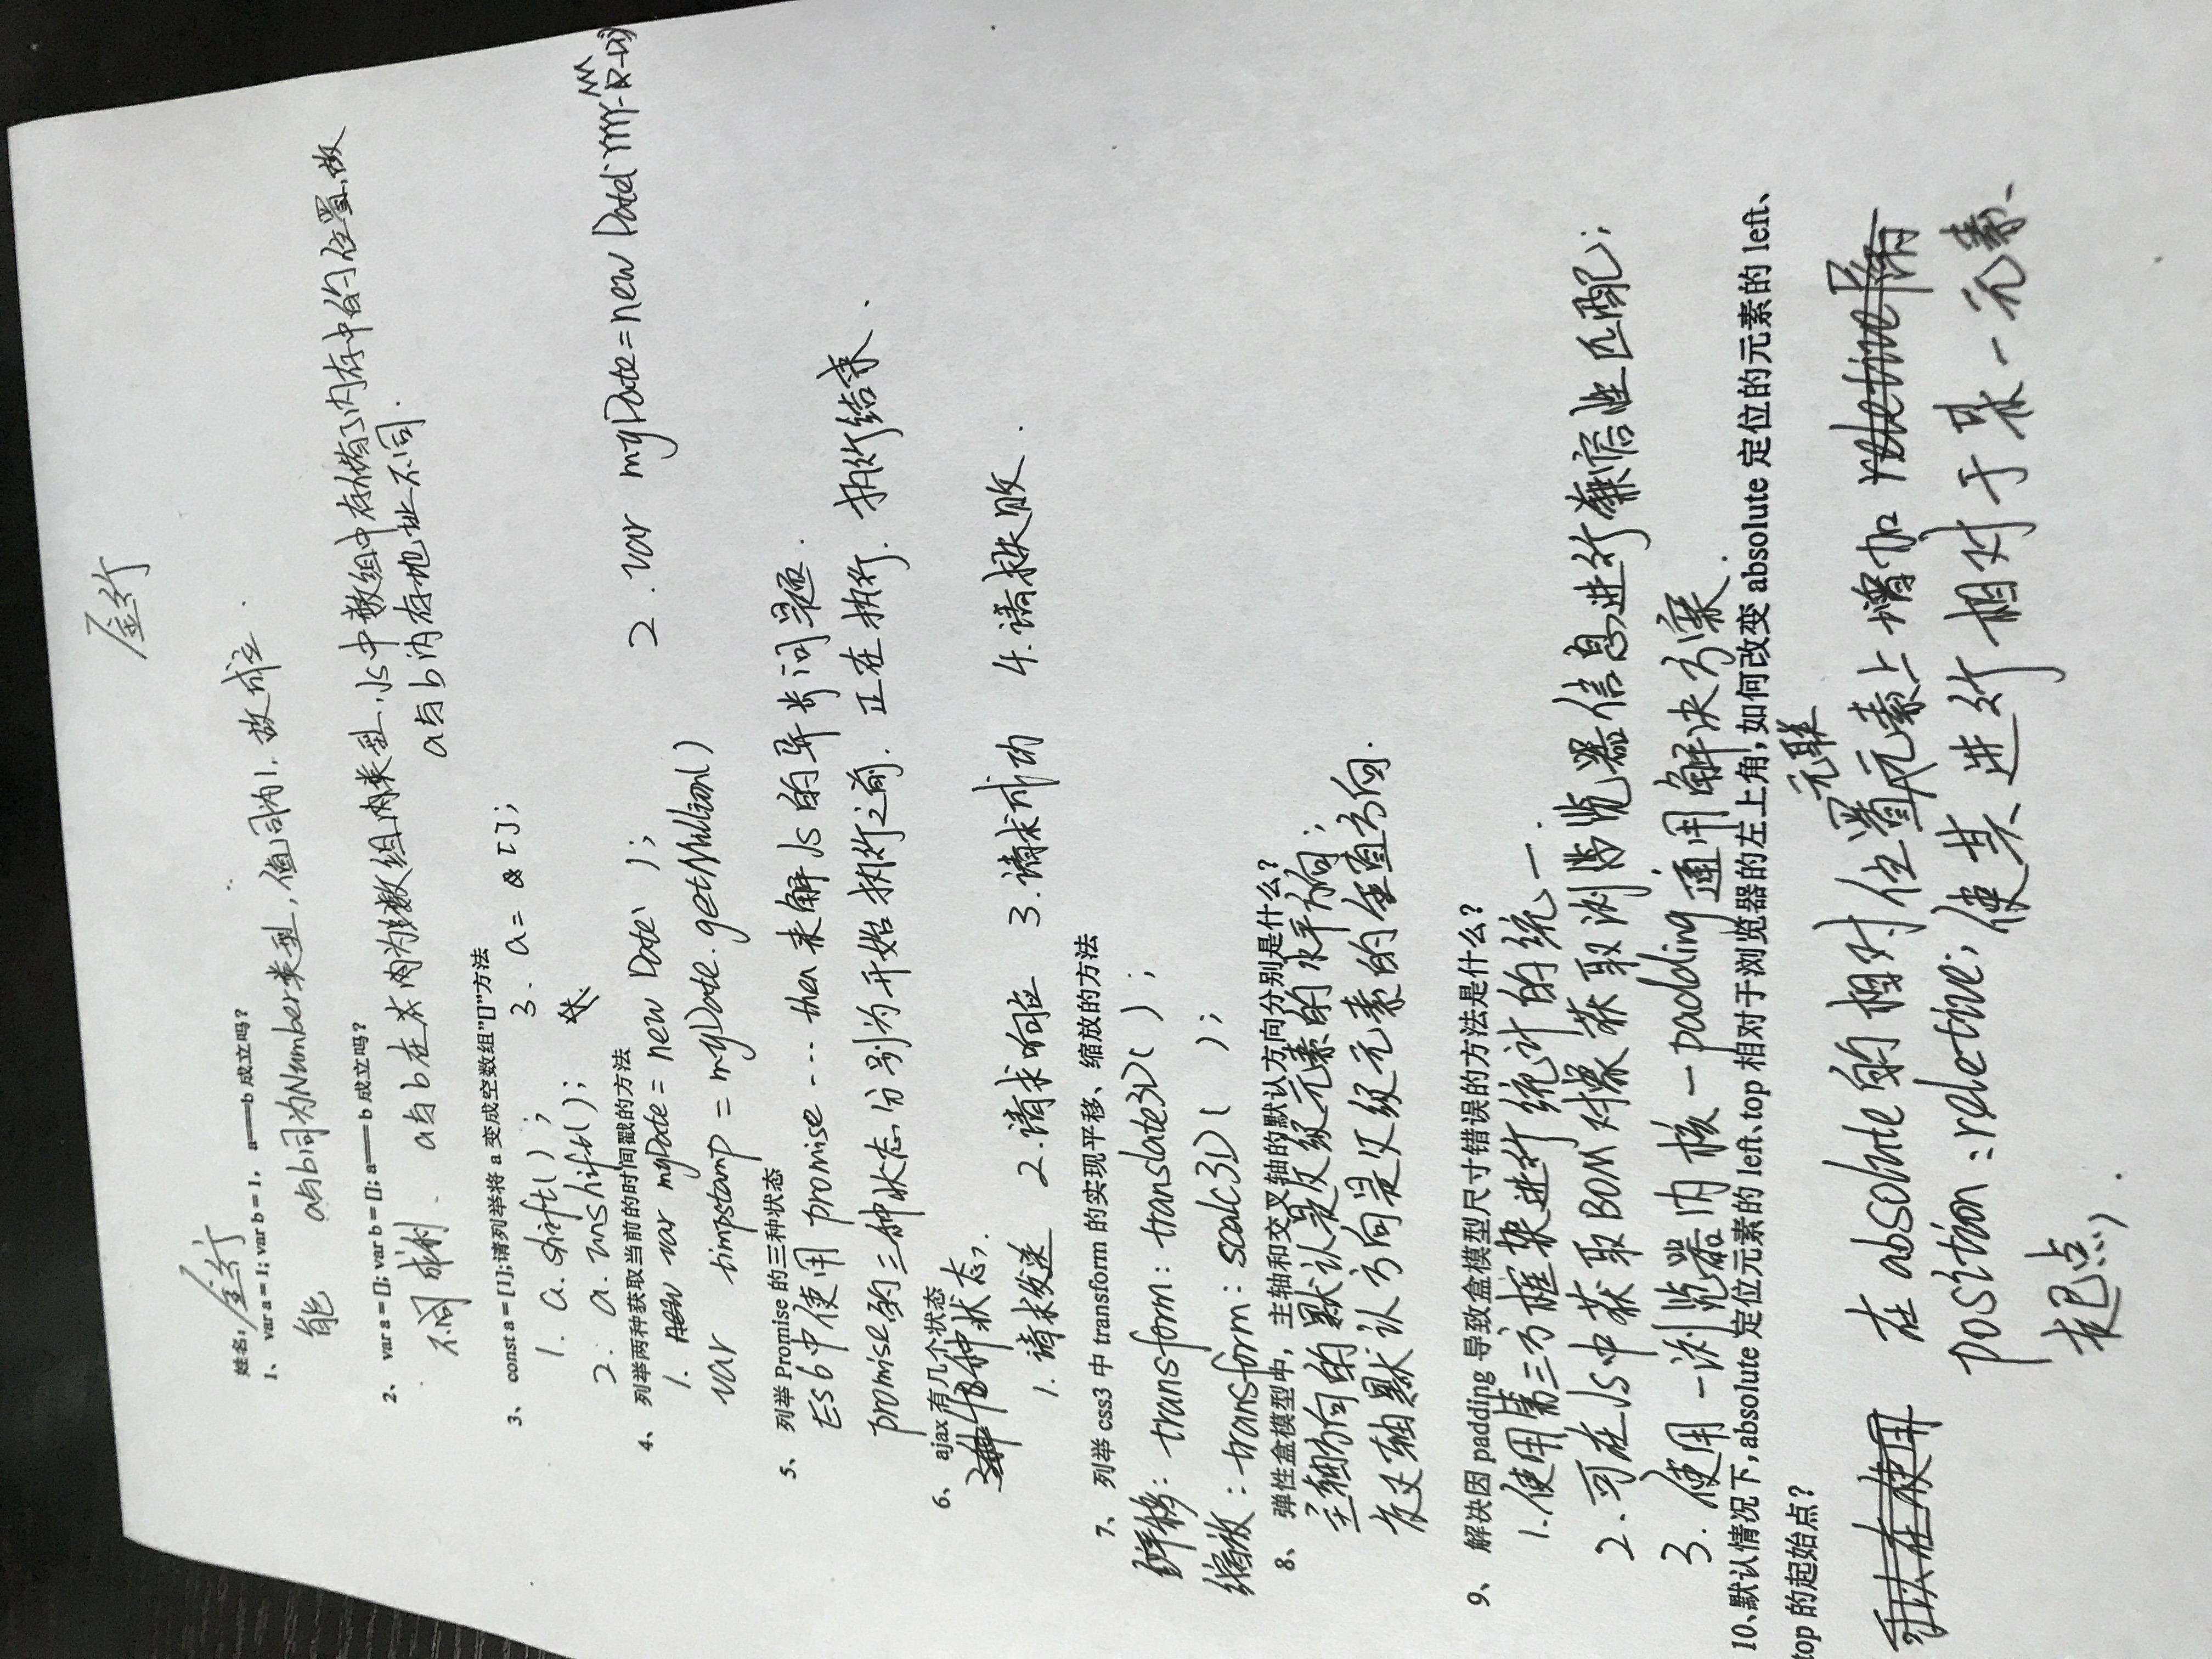 姓名:
1、 var a = 1; var b = 1， a===b 成立吗？
能 a与b同为Number类型，值同为1，故成立．
2、 var a = []; var b = []; a=== b 成立吗？
不同 a与b在 内为数组内类型，Js中数组中存储了内存中的位置，故
a与b内存地址不同．
3、 const a = [1];请列举将 a 变成空数组”[]”方法
1. a.shift( ) ; 3. a = [ ];
2. a.unshift( );
4、 列举两种获取当前的时间戳的方法
1. new var myDate = new Date( ); 2. var myDate = new Date(
var timpstamp = myDate.getMillion( )
5、 列举 Promise 的三种状态
ES6中使用 promise ... then 来解Js的异步问题．
promise的三种状态分别为开始执行之前．正在执行．执行结束．
6、 ajax 有几个状态
3种 4 种状态，.
1.请求发送 2.请求响应 3.请求成功 4.请求失败．
7、 列举 css3 中 transform 的实现平移、缩放的方法
平移: transform: translate3D( ) ;
缩放: transform: scale3D( );
8、 弹性盒模型中，主轴和交叉轴的默认方向分别是什么？
主轴方向的默认是父级元素的水平方向；
交叉轴默认方向是父级元素的垂直方向.
9、 解决因 padding 导致盒模型尺寸错误的方法是什么？
1.使用第三方框架进行统计的统一.
2.可在Js中获取BOM对象获取浏览器信息进行兼容性匹配；
3. 使用-浏览器内核-padding通用解决方案.
10、默认情况下,absolute 定位元素的 left、top 相对于浏览器的左上角,如何改变 absolute 定位的元素的 left、
top 的起始点？
可以在使用 在absolute的相对位置元素上增加 reletive
position:reletive; 使其进行相对于某一元素、
起点，.